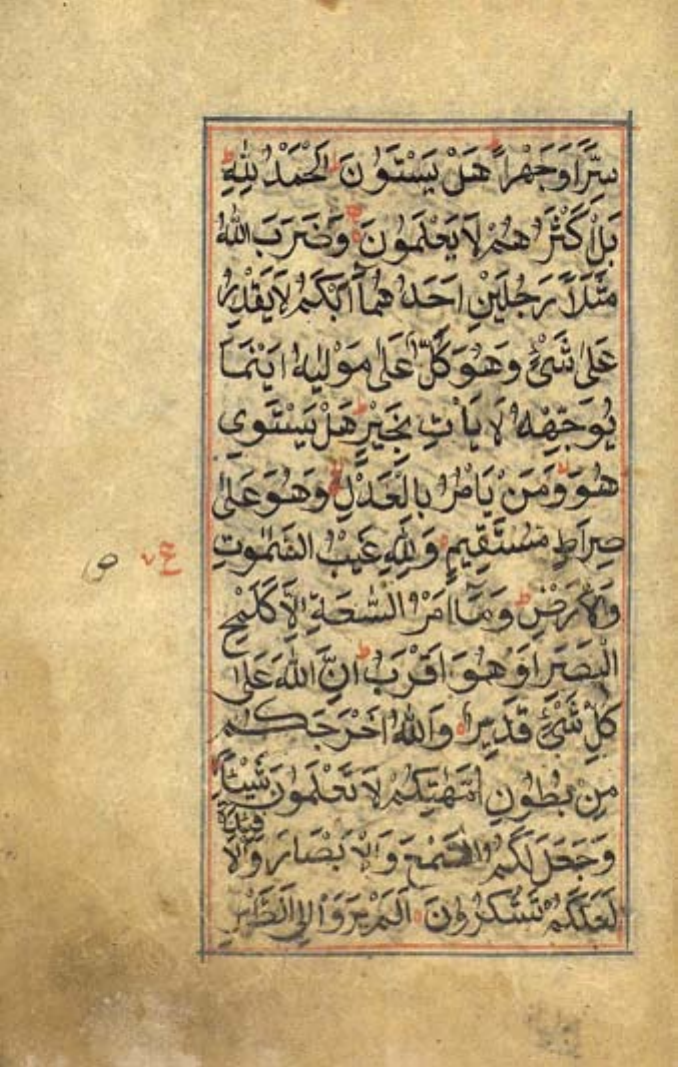 سِرًّا وَجَهْرًا هَلْ يَسْتَوُنَ ط اَلْحَمْدُ لِلّٰهِ ط
بَلْ اَكْثَرُهُمْ لَا يَعْلَمُوْنَ وَضَرَبَ اللّٰهُ
مَثَلًا رَجُلَيْنِ اَحَدُهُمَآ اَبْكَمُ لَا يَقْدِرُ
عَلٰى شَیْءٍ وَهُوَ كَلٌّ عَلٰى مَوْلٰىهُ اَيْنَمَا
يُوَجِّهْهُ لَا يَاْتِ بِخَيْرٍ ط هَلْ يَسْتَوِی
هُوَ وَمَنْ يَاْمُرُ بِالْعَدْلِ وَهُوَ عَلٰى
صِرَاطٍ مُسْتَقِيْمٍ وَلِلّٰهِ غَيْبُ السَّمٰوٰتِ
وَالْاَرْضِ ط وَمَآ اَمْرُ السَّعَةِ اِلَّا كَلَمْحِ
الْبَصَرِ اَوْ هُوَ اَقْرَبُ ط اِنَّ اللّٰهَ عَلٰى
كُلِّ شَیْءٍ قَدِيْرٌ وَاللّٰهُ اَخْرَجَكُمْ
مِنْ بُطُوْنِ اُمَّهٰتِكُمْ لَا تَعْلَمُوْنَ شَيْئًا
وَجَعَلَ لَكُمُ السَّمْعَ وَالْاَبْصَارَ وَالْاَ فْئِدَةَ
لَعَلَّكُمْ تَشْكُرُوْنَ اَلَمْ يَرَوْا اِلَى الطَّيْرِ
ع